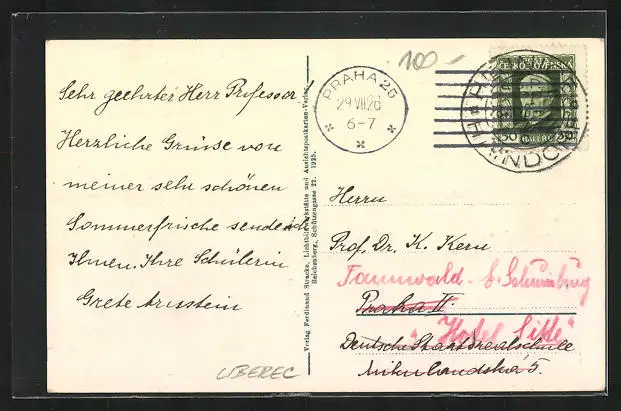 Sehr geehrter Herr Professor!
Herzliche Grüsse von
meiner sehr schönen
Sommerfrische sendet
Ihnen, Ihre Schülerin
Grete
LIBEREC
Verlag Ferdinand Stracke, Lichtbildwerkstätte und Ansichtspostkarten-Verlag,
Reichenberg, Schützengasse 22. 1925.
100.-
PRAHA 25
29 VII 26
6-7
50 50
HALÉŘŮ
Herrn
Prof. Dr. K. Kern
Tannwald-
Praha II.
"Hotel
Deutsche Staatsrealschule
Mikulandská 5